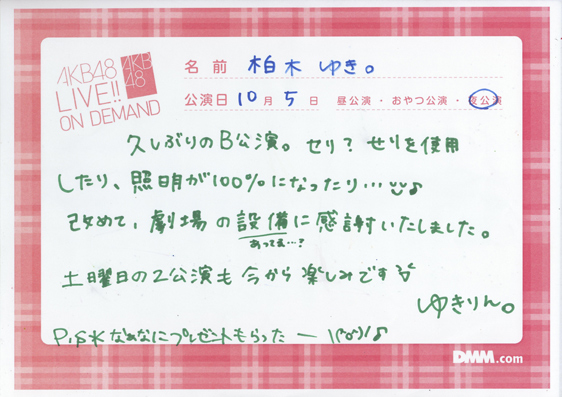 AKB48
LIVE!!
ON DEMAND
AKB
48
名前 柏木 ゆき。
公演日 10月 5日 昼公演・おやつ公演・夜公演
久しぶりのB公演。セリ？せりを使用
したり、照明が100%になったり…♪
改めて、劇場の設備に感謝いたしました。
あってる…？
土曜日の2公演も今から楽しみです
ゆきりん。
P.S なぁなにプレゼントもらったー
DMM.com